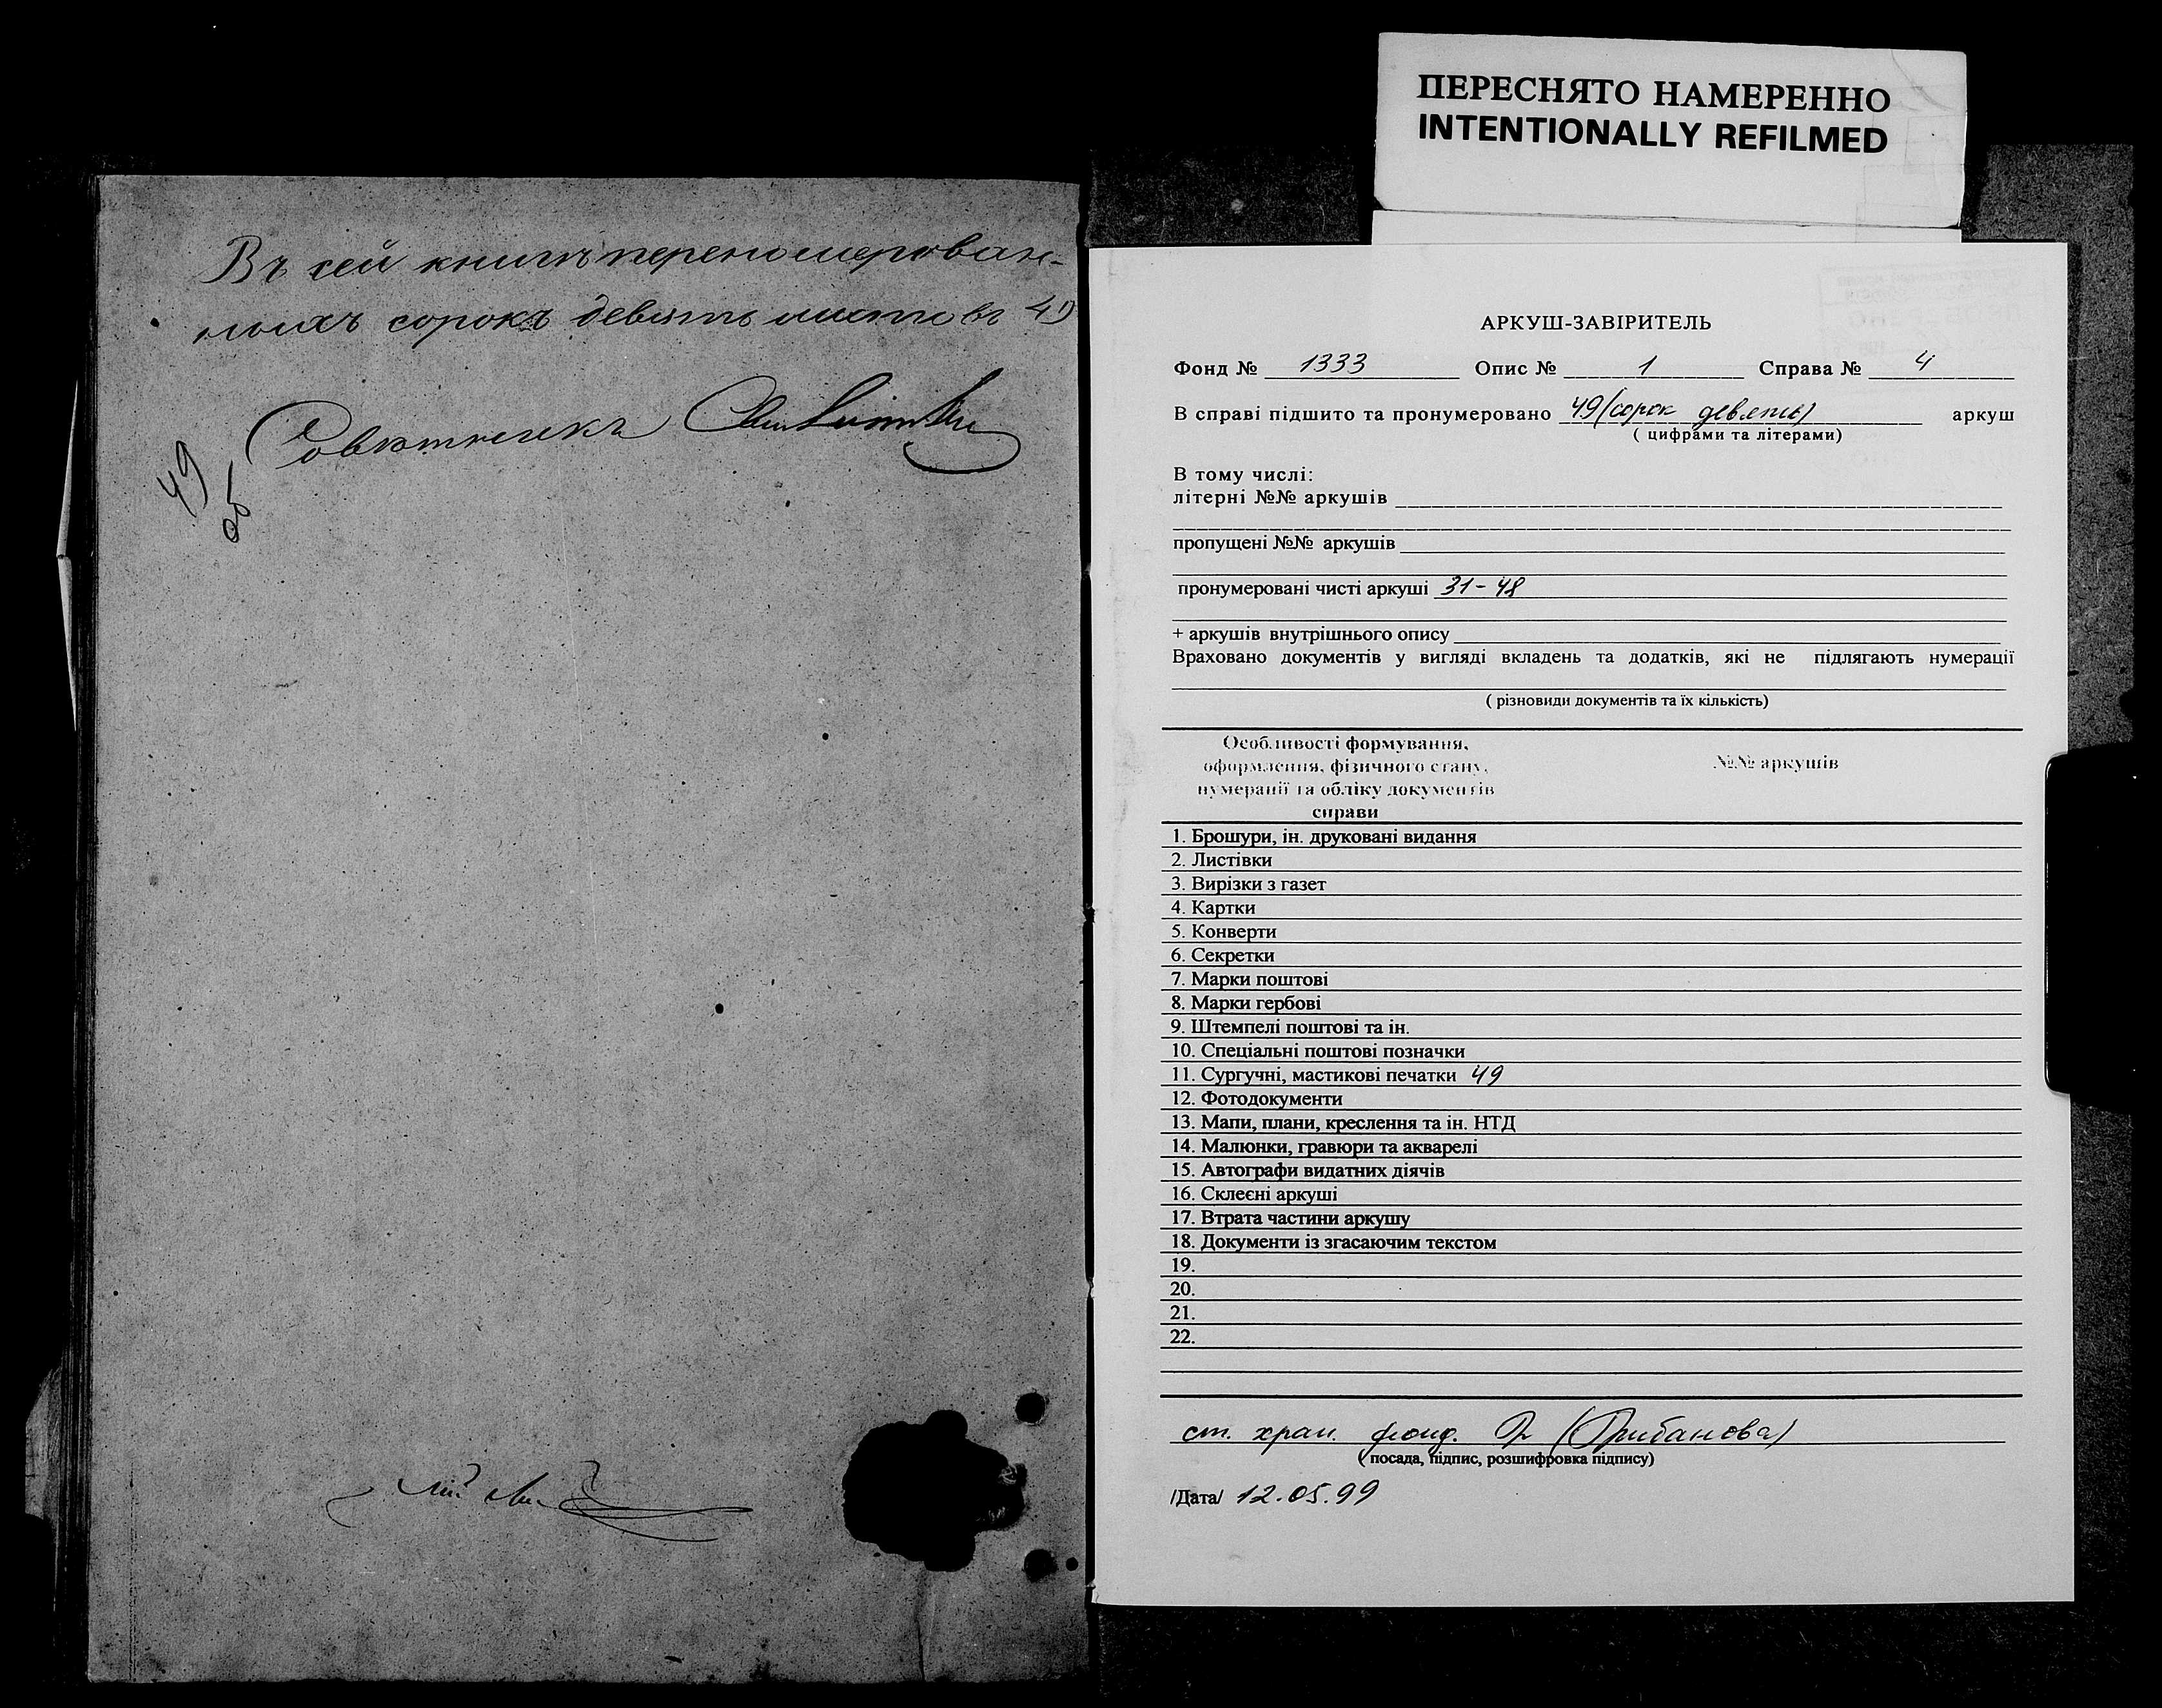 Въ сей книгѣ перенумерован-
ныхъ сорокъ девять листовъ 49
Совѣтникъ
49
об
ПЕРЕСНЯТО НАМЕРЕННО
INTENTIONALLY REFILMED
АРКУШ-ЗАВІРИТЕЛЬ
Фонд № 1333 Опис № 1 Справа № 4
В справі підшито та пронумеровано 49 (сорок девять) аркуш
( цифрами та літерами)
В тому числі:
літерні №№ аркушів
пропущені №№ аркушів
пронумеровані чисті аркуші 31-48
+ аркушів внутрішнього опису
Враховано документів у вигляді вкладень та додатків, які не підлягають нумерації
( різновиди документів та їх кількість)
Особливості формування, оформлення, фізичного стану, нумерації та обліку документів справи
№№ аркушів
1. Брошури, ін. друковані видання
2. Листівки
3. Вирізки з газет
4. Картки
5. Конверти
6. Секретки
7. Марки поштові
8. Марки гербові
9. Штемпелі поштові та ін.
10. Спеціальні поштові позначки
11. Сургучні, мастикові печатки 49
12. Фотодокументи
13. Мапи, плани, креслення та ін. НТД
14. Малюнки, гравюри та акварелі
15. Автографи видатних діячів
16. Склеєні аркуші
17. Втрата частини аркушу
18. Документи із згасаючим текстом
19.
20.
21.
22.
ст. хран. фонд. (Грибанова)
( посада, підпис, розшифровка підпису)
/Дата/ 12.05.99